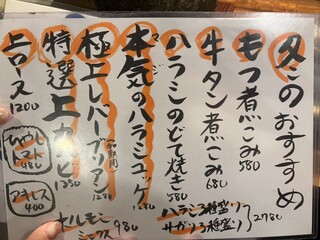 冬のおすすめ
もつ煮こみ 580
牛タン煮こみ 680
ハラミのどて焼き 580
本気のハラミユッケ 1280
マジ
極上レバーブリアン 1280
特選上カルビ 1380
上ロース 1200
ひやし
トマト
480
400
ホルモン
ミックス
980
ハラミ3種盛り
サガリ3種盛り
2780